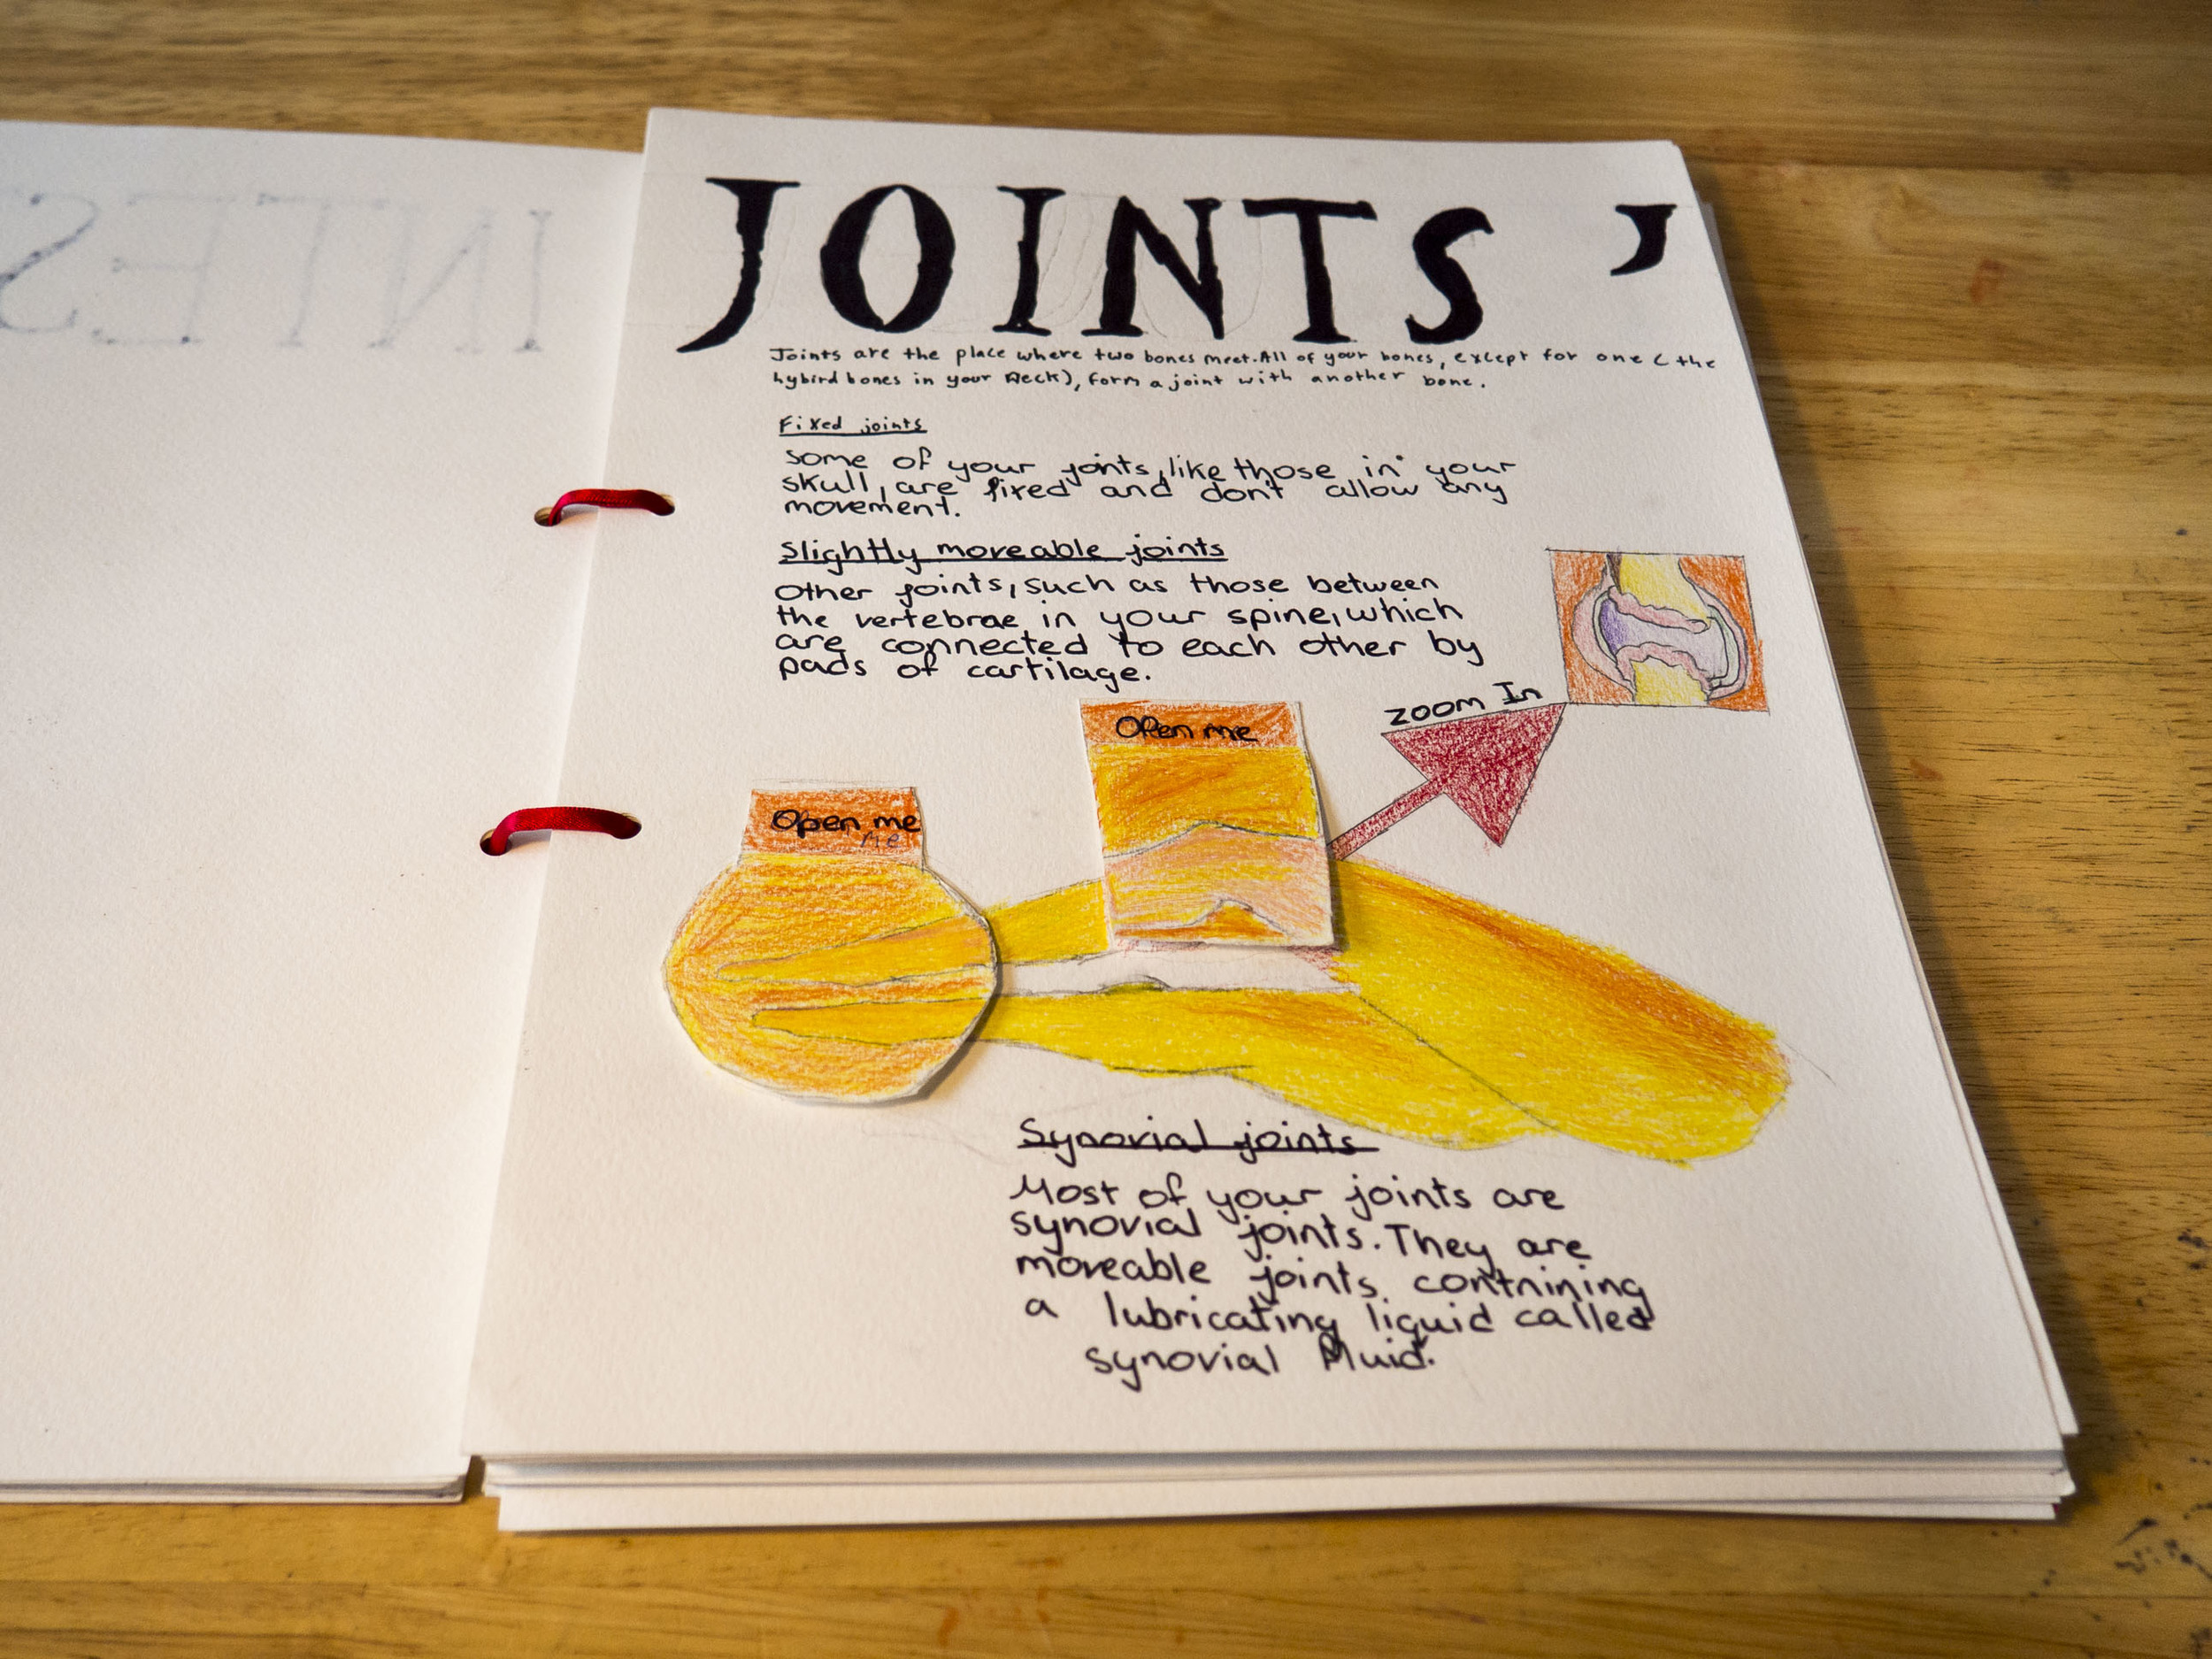 JOINTS '
Joints are the place where two bones meet. All of your bones, except for one ( the
hybird bones in your Neck), form a joint with another bone.
Fixed joints
some of your joints, like those in your
skull, are fixed and don't allow any
movement.
Slightly moreable joints
Other joints, such as those between
the vertebrae in your spine, which
are connected to each other by
pads of cartilage.
zoom In
Open me
Open me
me
Synovial joints
Most of your joints are
synovial joints. They are
moreable joints contnining
a lubricating liquid called
synovial fluid.